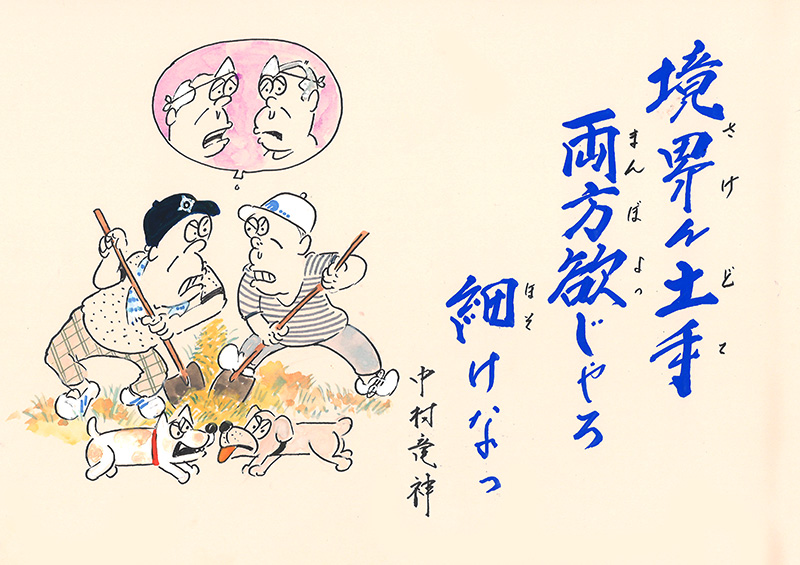 境界ん土手
さけ どて
両方欲じゃろ
まんぼ よっ
細けなっ
ほそ
中村竜神